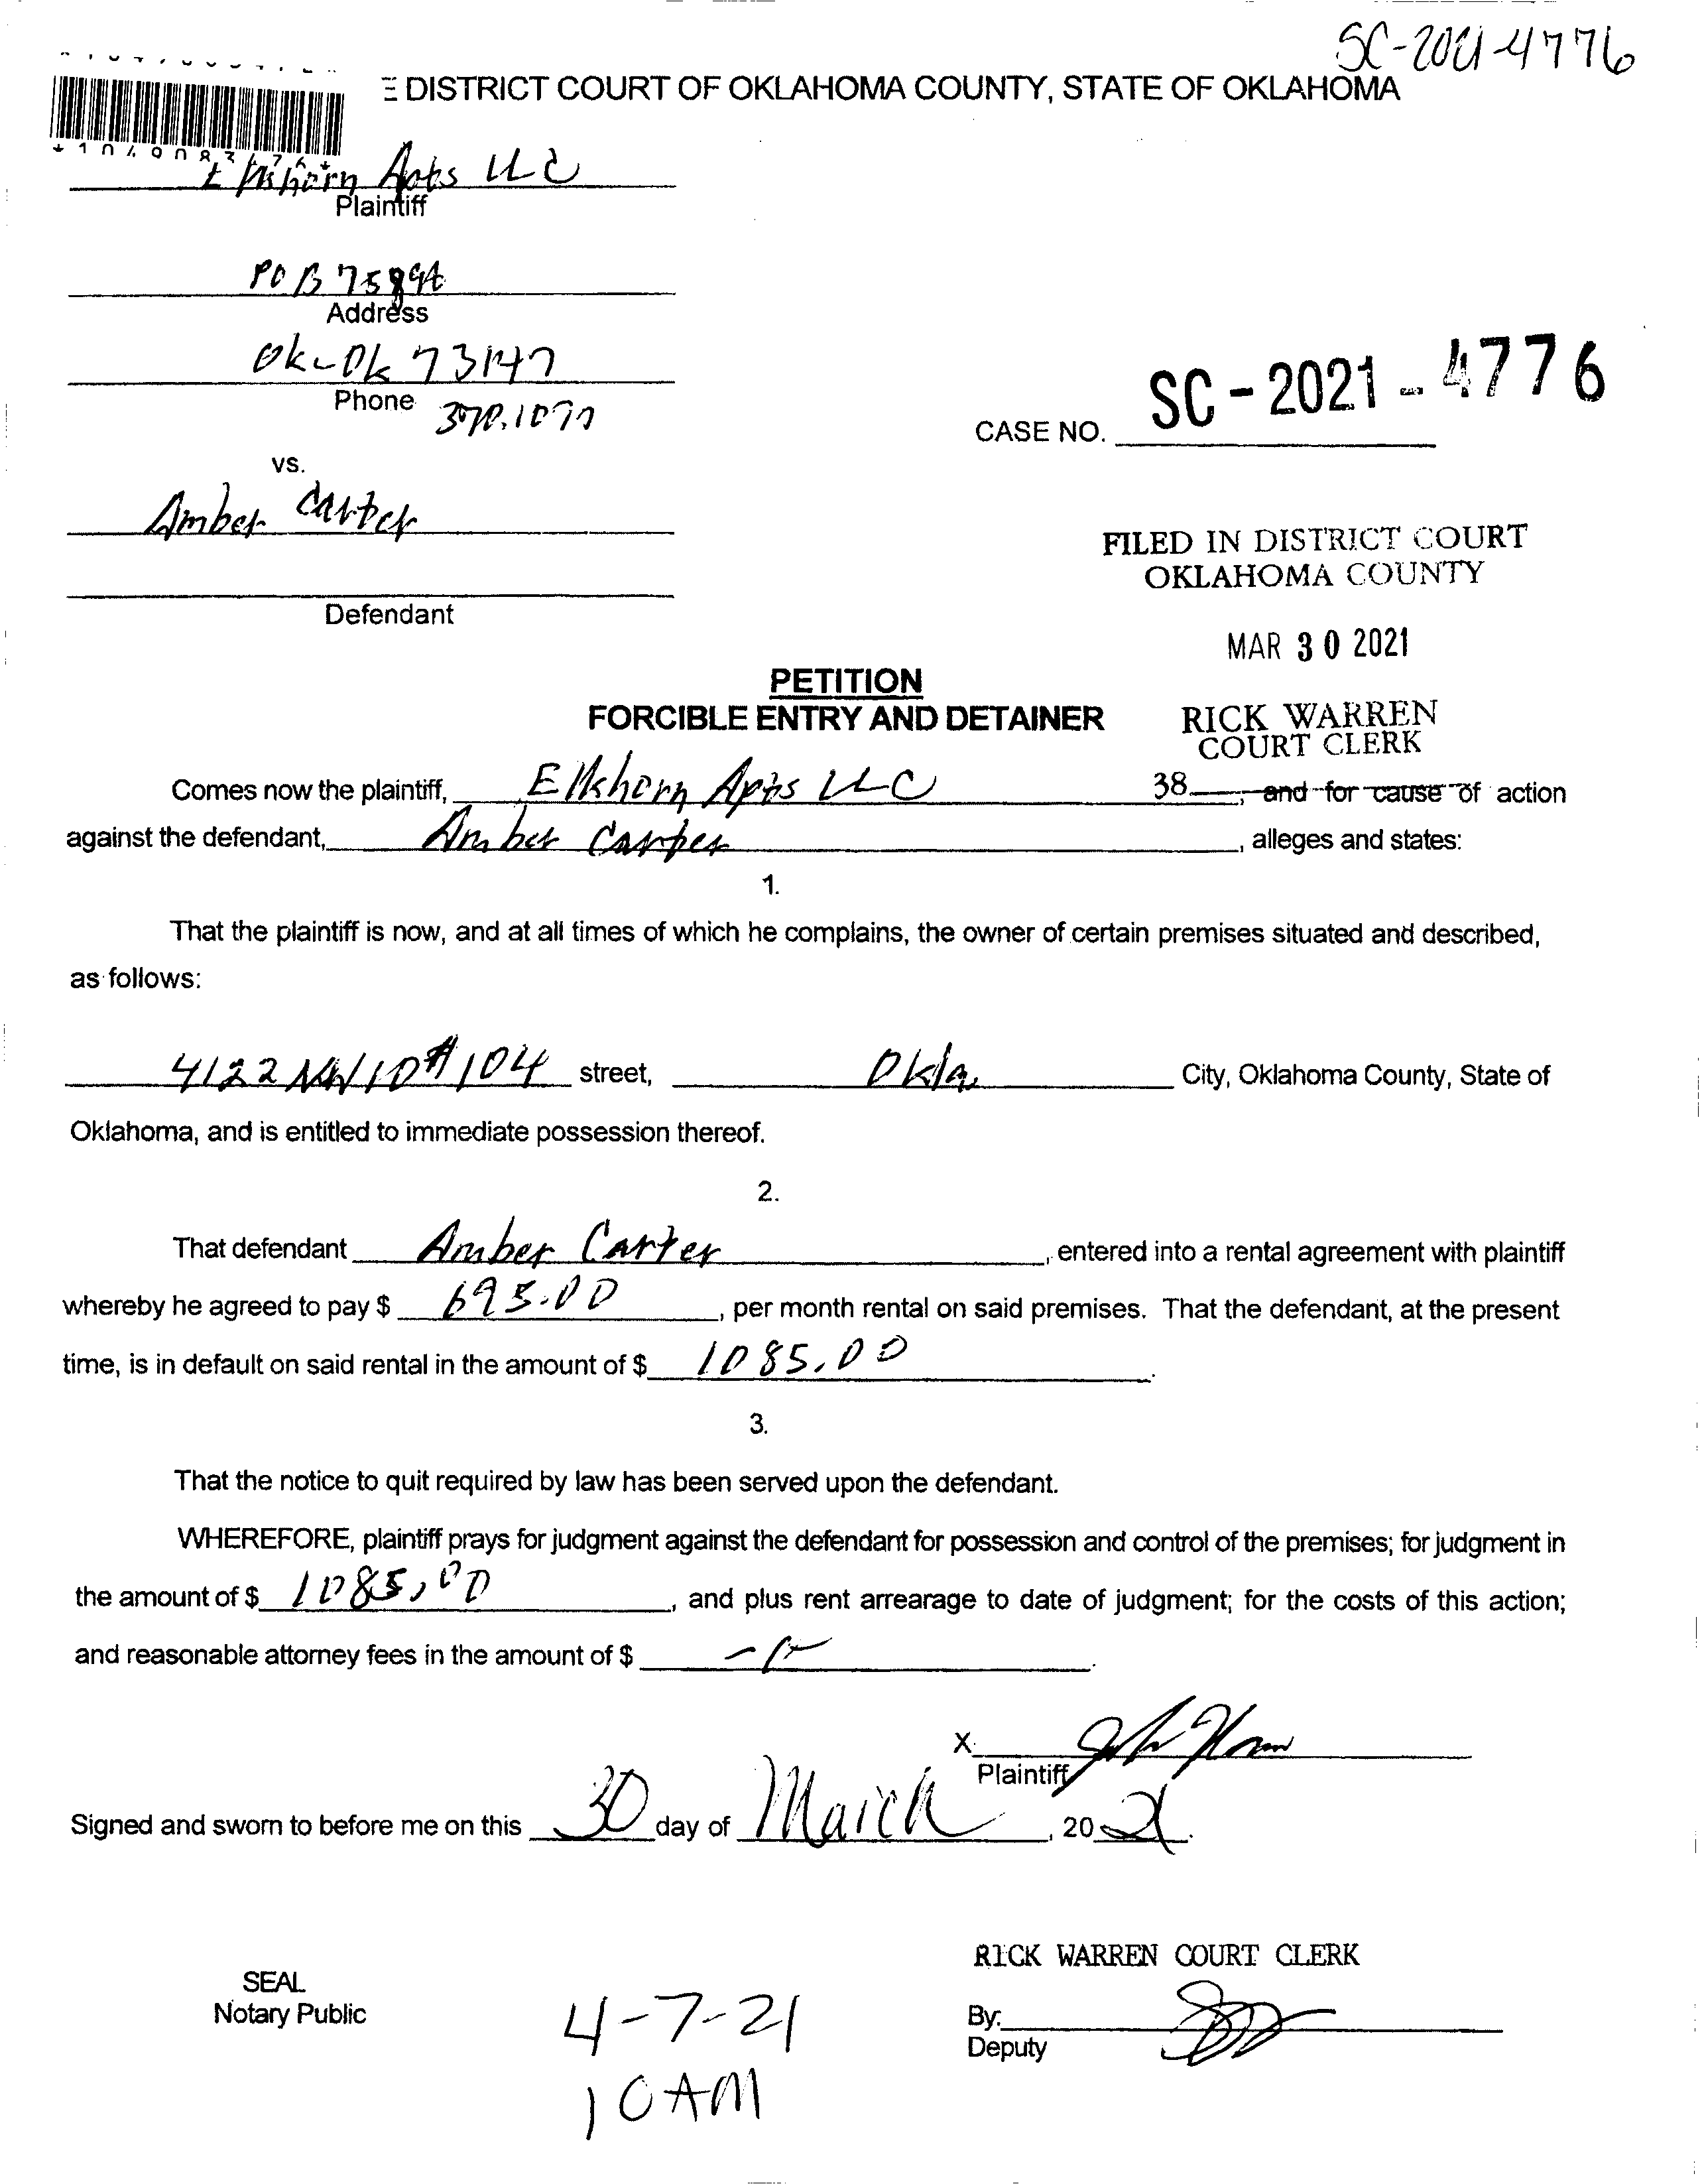 SC-2021-4776
E DISTRICT COURT OF OKLAHOMA COUNTY, STATE OF OKLAHOMA
Elkhorn Apts LLC
Plaintiff
POB 75894
Address
Okc Ok 73147
Phone
vs.
CASE NO. SC-2021-4776
Amber Carter
Defendant
FILED IN DISTRICT COURT
OKLAHOMA COUNTY
MAR 30 2021
RICK WARREN
COURT CLERK
38
PETITION
FORCIBLE ENTRY AND DETAINER
Comes now the plaintiff, Elkhorn Apts LLC, and for cause of action
against the defendant, Amber Carter, alleges and states:
1.
That the plaintiff is now, and at all times of which he complains, the owner of certain premises situated and described,
as follows:
4122 NW 10 #104 street, Okla. City, Oklahoma County, State of
Oklahoma, and is entitled to immediate possession thereof.
2.
That defendant Amber Carter, entered into a rental agreement with plaintiff
whereby he agreed to pay $ 695.00, per month rental on said premises. That the defendant, at the present
time, is in default on said rental in the amount of $ 1085.00.
3.
That the notice to quit required by law has been served upon the defendant.
WHEREFORE, plaintiff prays for judgment against the defendant for possession and control of the premises; for judgment in
the amount of $ 1085.00, and plus rent arrearage to date of judgment; for the costs of this action;
and reasonable attorney fees in the amount of $
X
Plaintiff
Signed and sworn to before me on this 30 day of March, 2021.
RICK WARREN COURT CLERK
SEAL
Notary Public
By:
Deputy
4-7-21
10AM